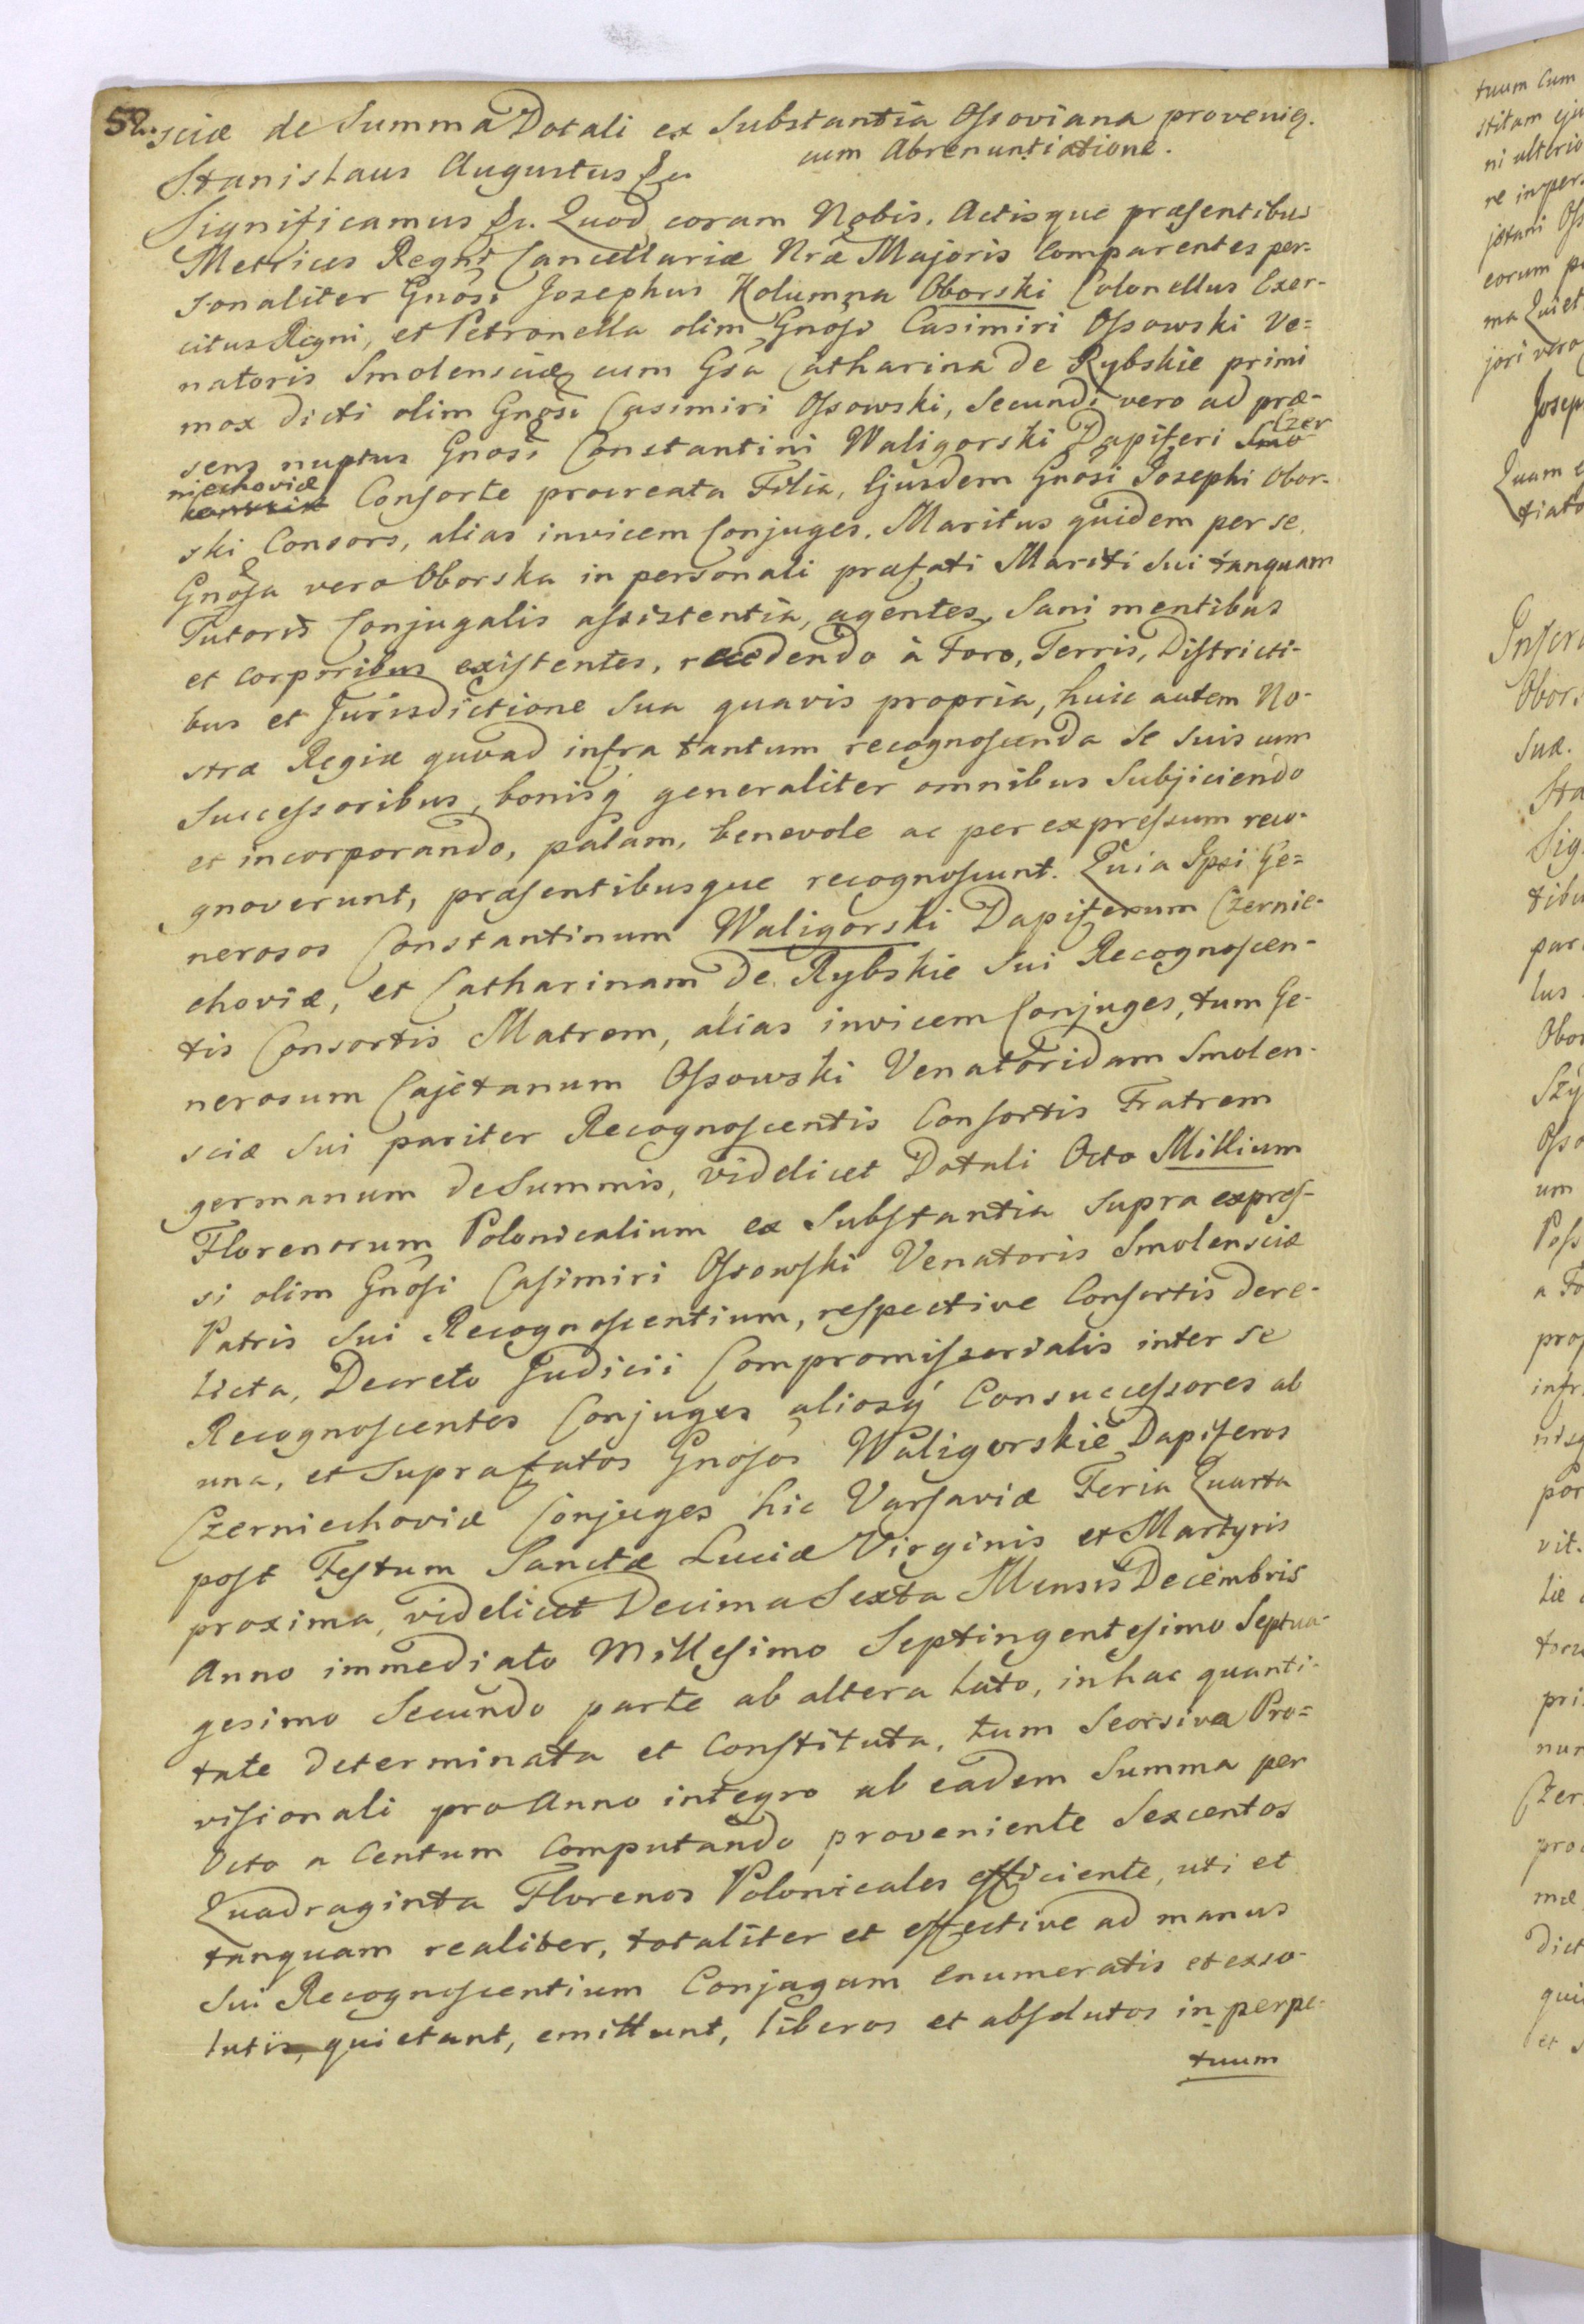 52.
sciæ de Summa Dotali ex Substantia Ossoviana provenien.
cum Abrenuntiatione.
Stanislaus Augustus &c
Significamus &c. Quod coram Nobis, Actisque præsentibus
Metrices Regni Cancellariæ Nræ Majoris Comparentes per-
sonaliter Gnosi Josephus Kolumna Oborski Colonellus Exer-
citus Regni, et Petronella olim Gnosi Casimiri Ossowski Ve=
natoris Smolensciæ cum Gsa Catharina de Rybskie primi
mox dicti olim Gnosi Casimiri Ossowski, Secundi vero ad præ-
sens nuptus Gnosi Constantini Waligorski Dapiferi Smo Czer
niechoviæ Consorte procreata Filia, Ejusdem Gnosi Josephi Obor-
ski Consors, alias invicem Conjuges. Maritus quidem per se,
Gnosa vero Oborska in personali præfati Mariti Sui tanquam
Tutoris Conjugalis assistentia, agentes, Sani mentibus
et corporibus existentes, recedendo à Foro, Terris, Districti-
bus et Jurisdictione Sua quavis propria, huic autem No-
stræ Regiæ quoad infra tantum recognoscenda Se Suis cum
Successoribus, bonisq generaliter omnibus Subjiciendo
et incorporando, palam, benevole ac per expressum reco-
gnoverunt, præsentibusque recognoscunt. Quia Ipsi Ge=
nerosos Constantinum Waligorski Dapiferum Czernie-
choviæ, et Catharinam de Rybskie Sui Recognoscen-
tis Consortis Matrem, alias invicem Conjuges, tum Ge-
nerosum Cajetanum Ossowski Venatoridam Smolen-
sciæ Sui pariter Recognoscentis Consortis Fratrem
germanum de Summis, videlicet Dotali Octo Millium
Florenorum Polonicalium ex Substantia Supra expres-
si olim Gnosi Casimiri Ossowski Venatoris Smolensciæ
Patris Sui Recognoscentium, respective Consortis dere-
licta, Decreto Judicii Compromissorialis inter Se
Recognoscentes Conjuges aliosq Consuccessores ab
una, et Suprafatos Gnosos Waligorskie Dapiferos
Czerniechoviæ Conjuges hic Varsaviæ Feria Quarta
post Festum Sanctæ Luciæ Virginis et Martyris
proxima, videlicet Decima Sexta Mensis Decembris
Anno immediato Millesimo Septingentesimo Septua-
gesimo Secundo parte ab altera lato, in hac quanti-
tate determinata et Constituta, tum Seorsiva Pro=
visionali pro Anno integro ab eadem Summa per
Octo a Centum Computando proveniente Sexcentos
Quadraginta Florenos Polonicales efficiente, uti et
tanquam realiter, totaliter et effective ad manus
Sui Recognoscentium Conjugum enumeratis et exso-
lutis, quietant, emittunt, liberos et absolutos in perpe-
tuum
tuum Cum
ni ulterio
eorum
jori vero
Josep
Quam
tiato
Obor
Suæ.
Sta
Sig
par
lus
Obor
um
Poss
a Fo
infr
por
vit.
pri
Czer
dict
qui
et